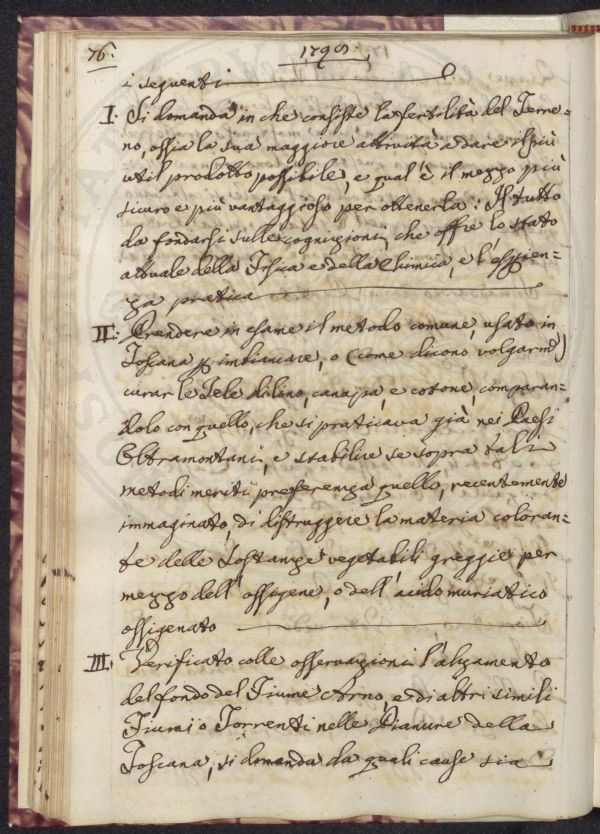 76.
1790.
i seguenti
I. Si domanda in che consiste la fertilità del Terre=
no, ossia la sua maggiore attività a dare il più
util prodotto possibile, e qual'è il mezzo più
sicuro e più vantaggioso per ottenerla: Il tutto
da fondarsi sulle cognizioni, che offre lo stato
attuale della Fisica e della Chimica, e l'esperien=
za pratica
II. Prendere in esame il metodo comune, usato in
Toscana p imbiancare, o (come dicono volgarmte)
curar le Tele di lino, canapa, e cotone, comparan=
dolo con quello, che si praticava già nei Paesi
Oltramontani, e stabilire se sopra tali
metodi meriti preferenza quello, recentemente
immaginato, di distruggere la materia coloran=
te delle Sostanze vegetabili greggie per
mezzo dell'ossigene, o dell'acido muriatico
ossigenato
III. Verificato colle osservazioni l'alzamento
del fondo del Fiume Arno, e di altri simili
Fiumi o Torrenti nelle Pianure della
Toscana, si domanda da quali cause sia